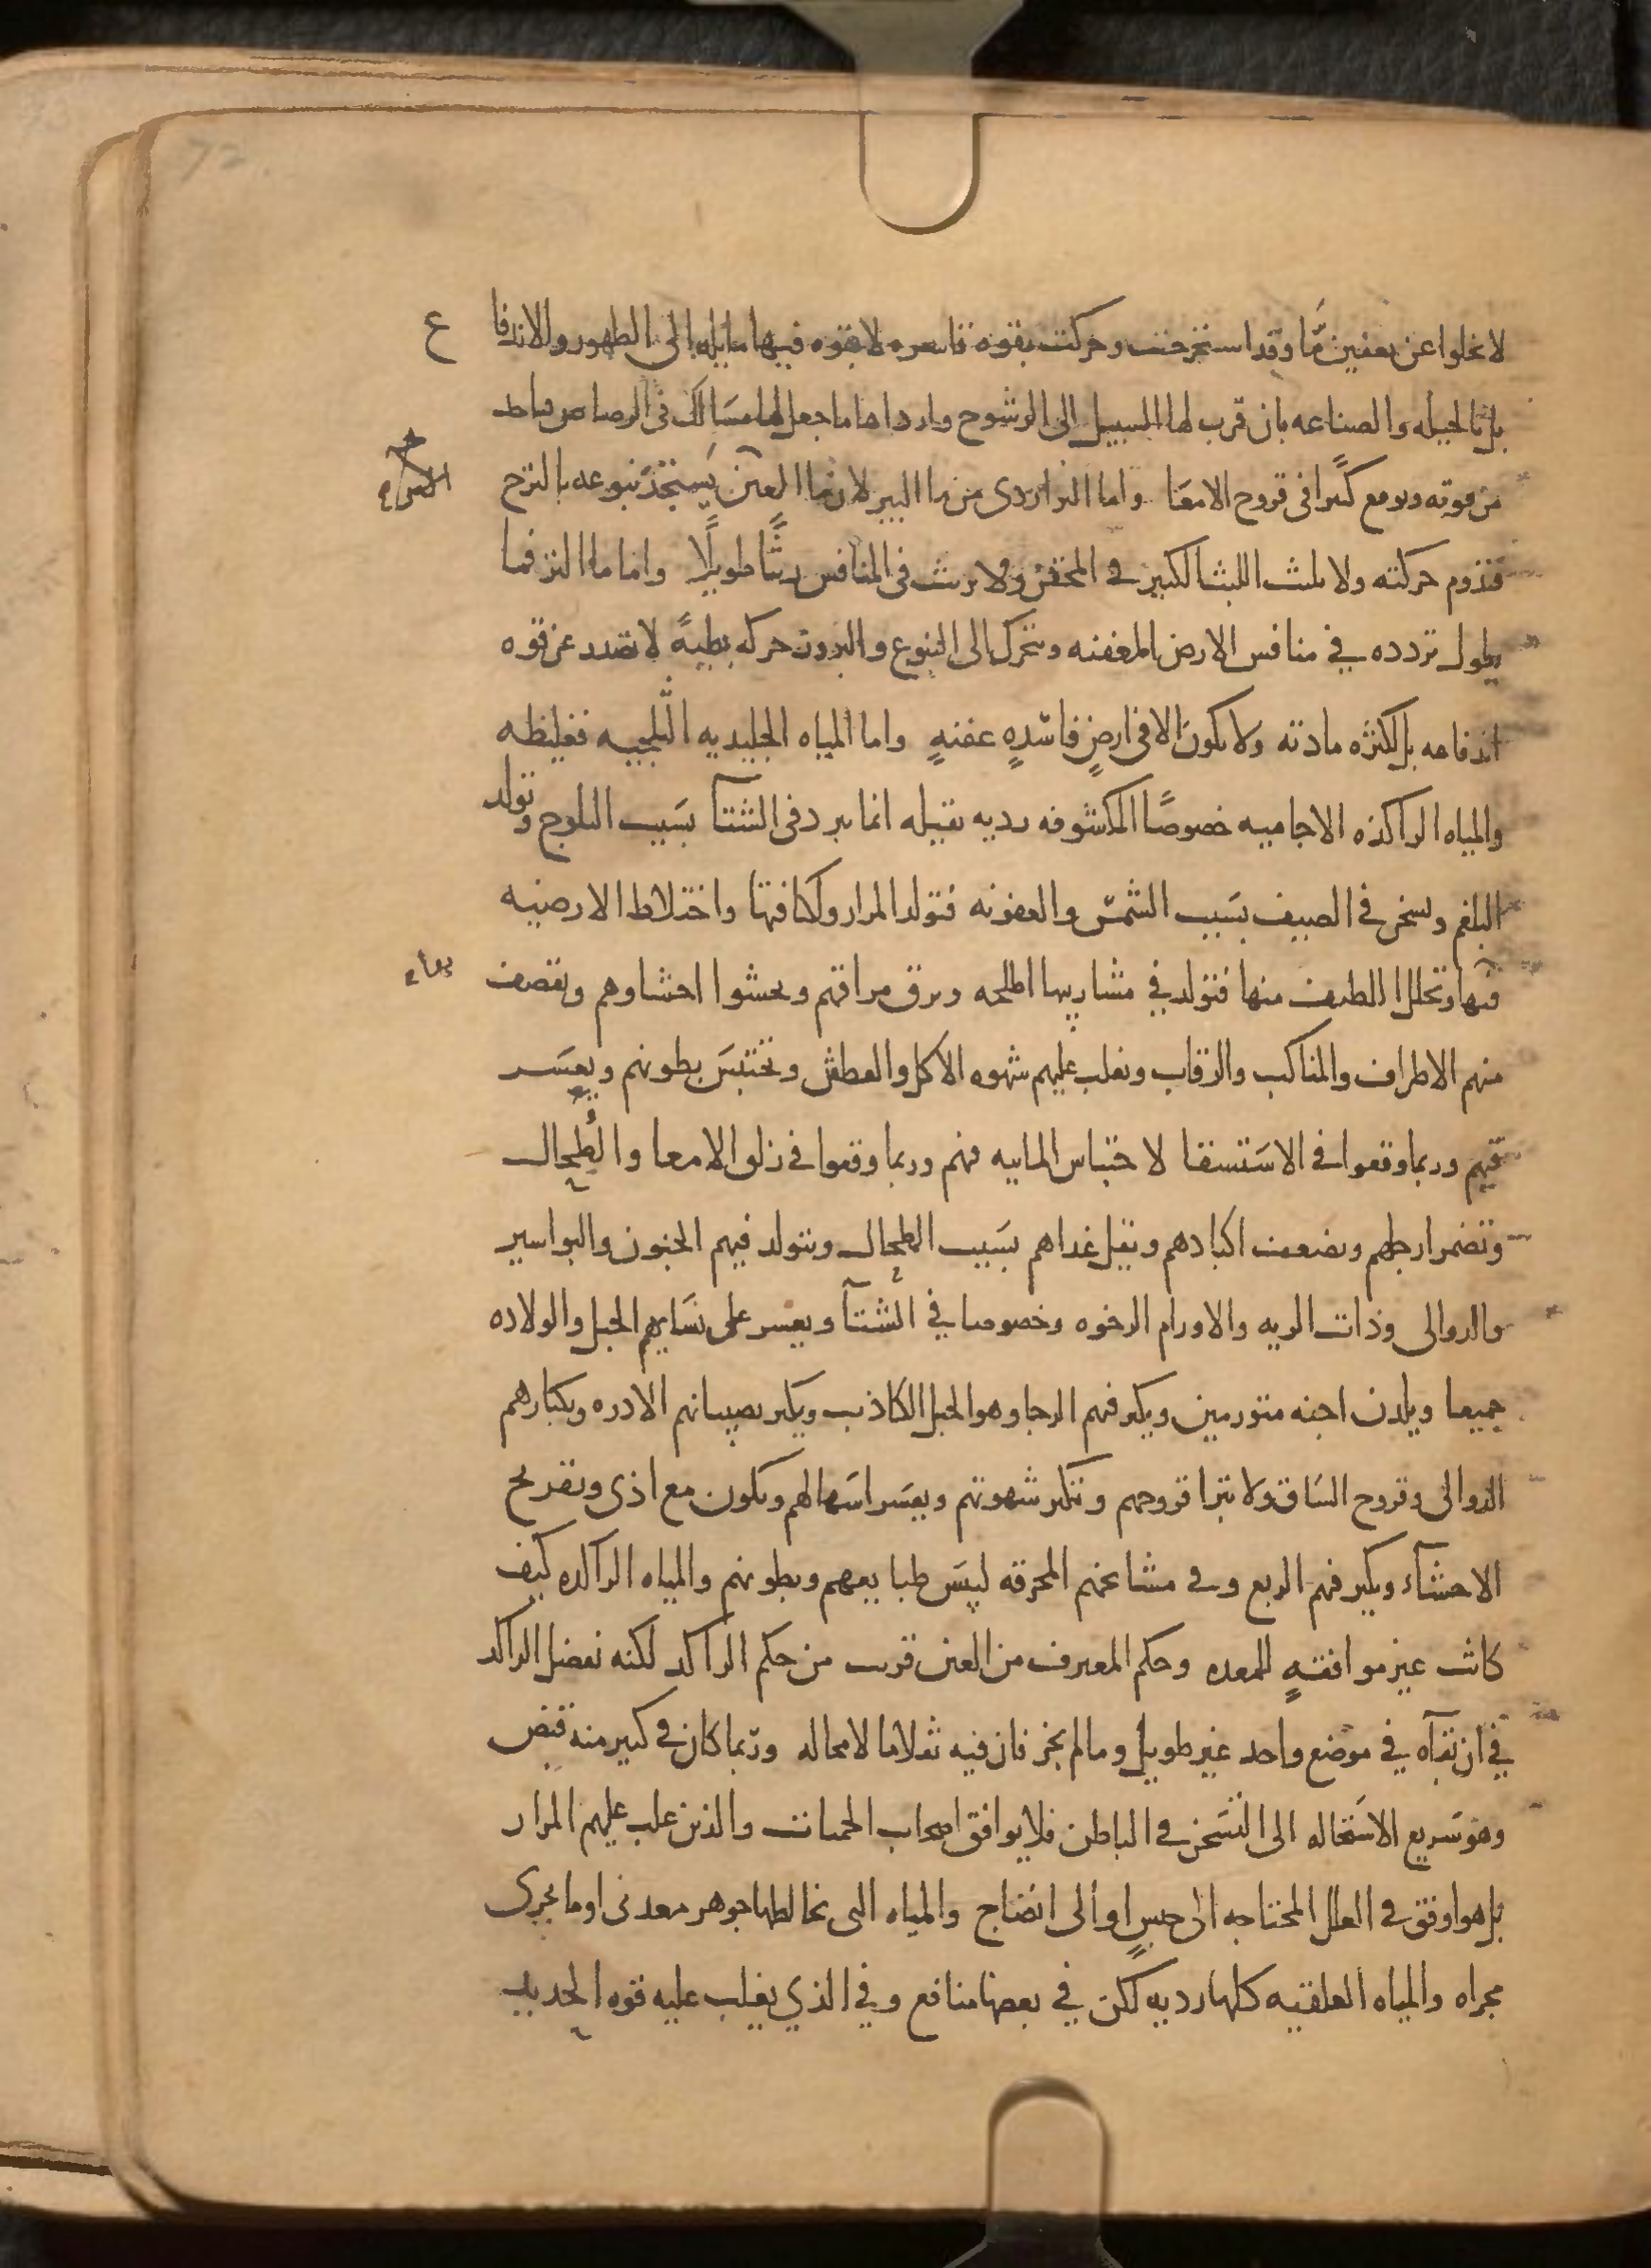 72
لا تخلوا عن تعفين مّا وقد استخرجت وحركت بقوه قاسره لا بقوه فيها مايله الى الظهور والاندفا ع
بل بالحيله والصناعه بان قرب لها السبيل الى الرشوح وارداها ما جعل لها مسالك فى الرصاص فياخذ
من قوته ويوقع كثيرا فى قروح الامعا واما النز اردى من ما البير لان ما العين يستجد نبوعه بالنزح
فتدوم حركته ولا يلبث اللبث الكثير في المحقن ولا يريث فى المنافس ريثًا طويلًا واما ما النز فما
يطول تردده في منافس الارض المعفنه ويتحرك الى النبوع والبروز حركه بطيهً لا تصدر عن قوه
اندفاعه بل لكثره مادته ولا يكون الا فى ارضٍ فاسدهٍ عفنهٍ واما المياه الجليديه الثلجيه فغليظه
والمياه الراكده الاجاميه خصوصًا المكشوفه رديه ثقيله انما يبرد فى الشتآ بسبب الثلوج وتولد
البلغم ويسخن في الصيف بسبب الشمس والعفونه فتولد المرار ولكثافتها واختلاط الارضيه
فيها وتحلل اللطيف منها فتولد في مشاربيها اطلحه ويرق مراقهم ويحشوا احشاوهم ويقصف
منهم الاطراف والمناكب والرقاب ويغلب عليهم شهوه الاكل والعطش وتحتبس بطونهم ويعسر
قيهم وربما وقعوا فى الاستسقا لاحتباس الماييه فيهم وربما وقعوا في زلق الامعا والطحال
وتضمر ارجلهم ويضعف اكبادهم ويقل غداهم بسبب الطحال ويتولد فيهم الجنون والبواسير
والدوالى وذات الريه والاورام الرخوه وخصوصا في الشتآ ويعسر على نسايهم الحبل والولاده
جميعا ويلدن اجنه متورمين ويكثر فيهم الرجا وهو الحبل الكاذب ويكثر بصبيانهم الادره وبكبارهم
الدوالى وقروح الساق ولا تبرا قروحهم وتكثر شهوتهم ويعسر اسهالهم ويكون مع اذى وتقريح
الاحشاء ويكثر فيهم الربع وفى مشايخهم المحرقه ليبس طبايعهم وبطونهم والمياه الراكده كيف
كانت غير موافقهٍ للمعده وحكم المعترف من العين قريب من حكم الراكد لكنه يفضل الراكد
في ان بقآه في موضع واحد غير طويل وما لم يجر فان فيه ثقلا ما لا محاله وربما كان في كثير منه قبض
وهو سريع الاستحاله الى التسخن في الباطن فلا يوافق اصحاب الحميات والذين غلب عليهم المرار
بل هو اوفق في العلل المحتاجه الى حبسٍ او الى انضاج والمياه التى تخالطها جوهر معدنى او ما يجرى
مجراه والمياه العلقيه كلها رديه لكن في بعضها منافع وفي الذي يغلب عليه قوه الحديد